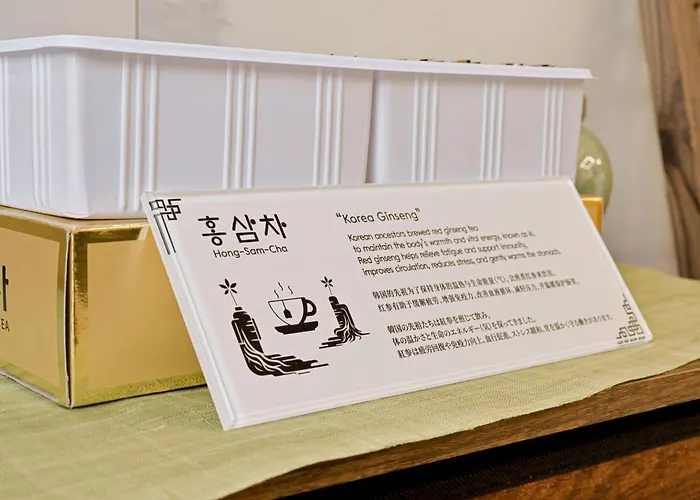 홍삼차
Hong-Sam-Cha
“Korea Ginseng”
Korean ancestors brewed red ginseng tea
to maintain the body's warmth and vital energy, known as ki.
Red ginseng helps relieve fatigue and support immunity,
improves circulation, reduces stress, and gently warms the stomach.
韩国的先祖为了保持身体的温热与生命能量(气), 会煎煮红参来饮用。
红参有助于缓解疲劳, 增强免疫力, 改善血液循环、减轻压力, 并温暖保护肠胃。
韓国の先祖たちは紅参を煎じて飲み、
体の温かさと生命のエネルギー(気)を保ってきました。
紅参は疲労回復や免疫力向上、血行促進、ストレス緩和、胃を温かく守る働きがあります。
차
TEA